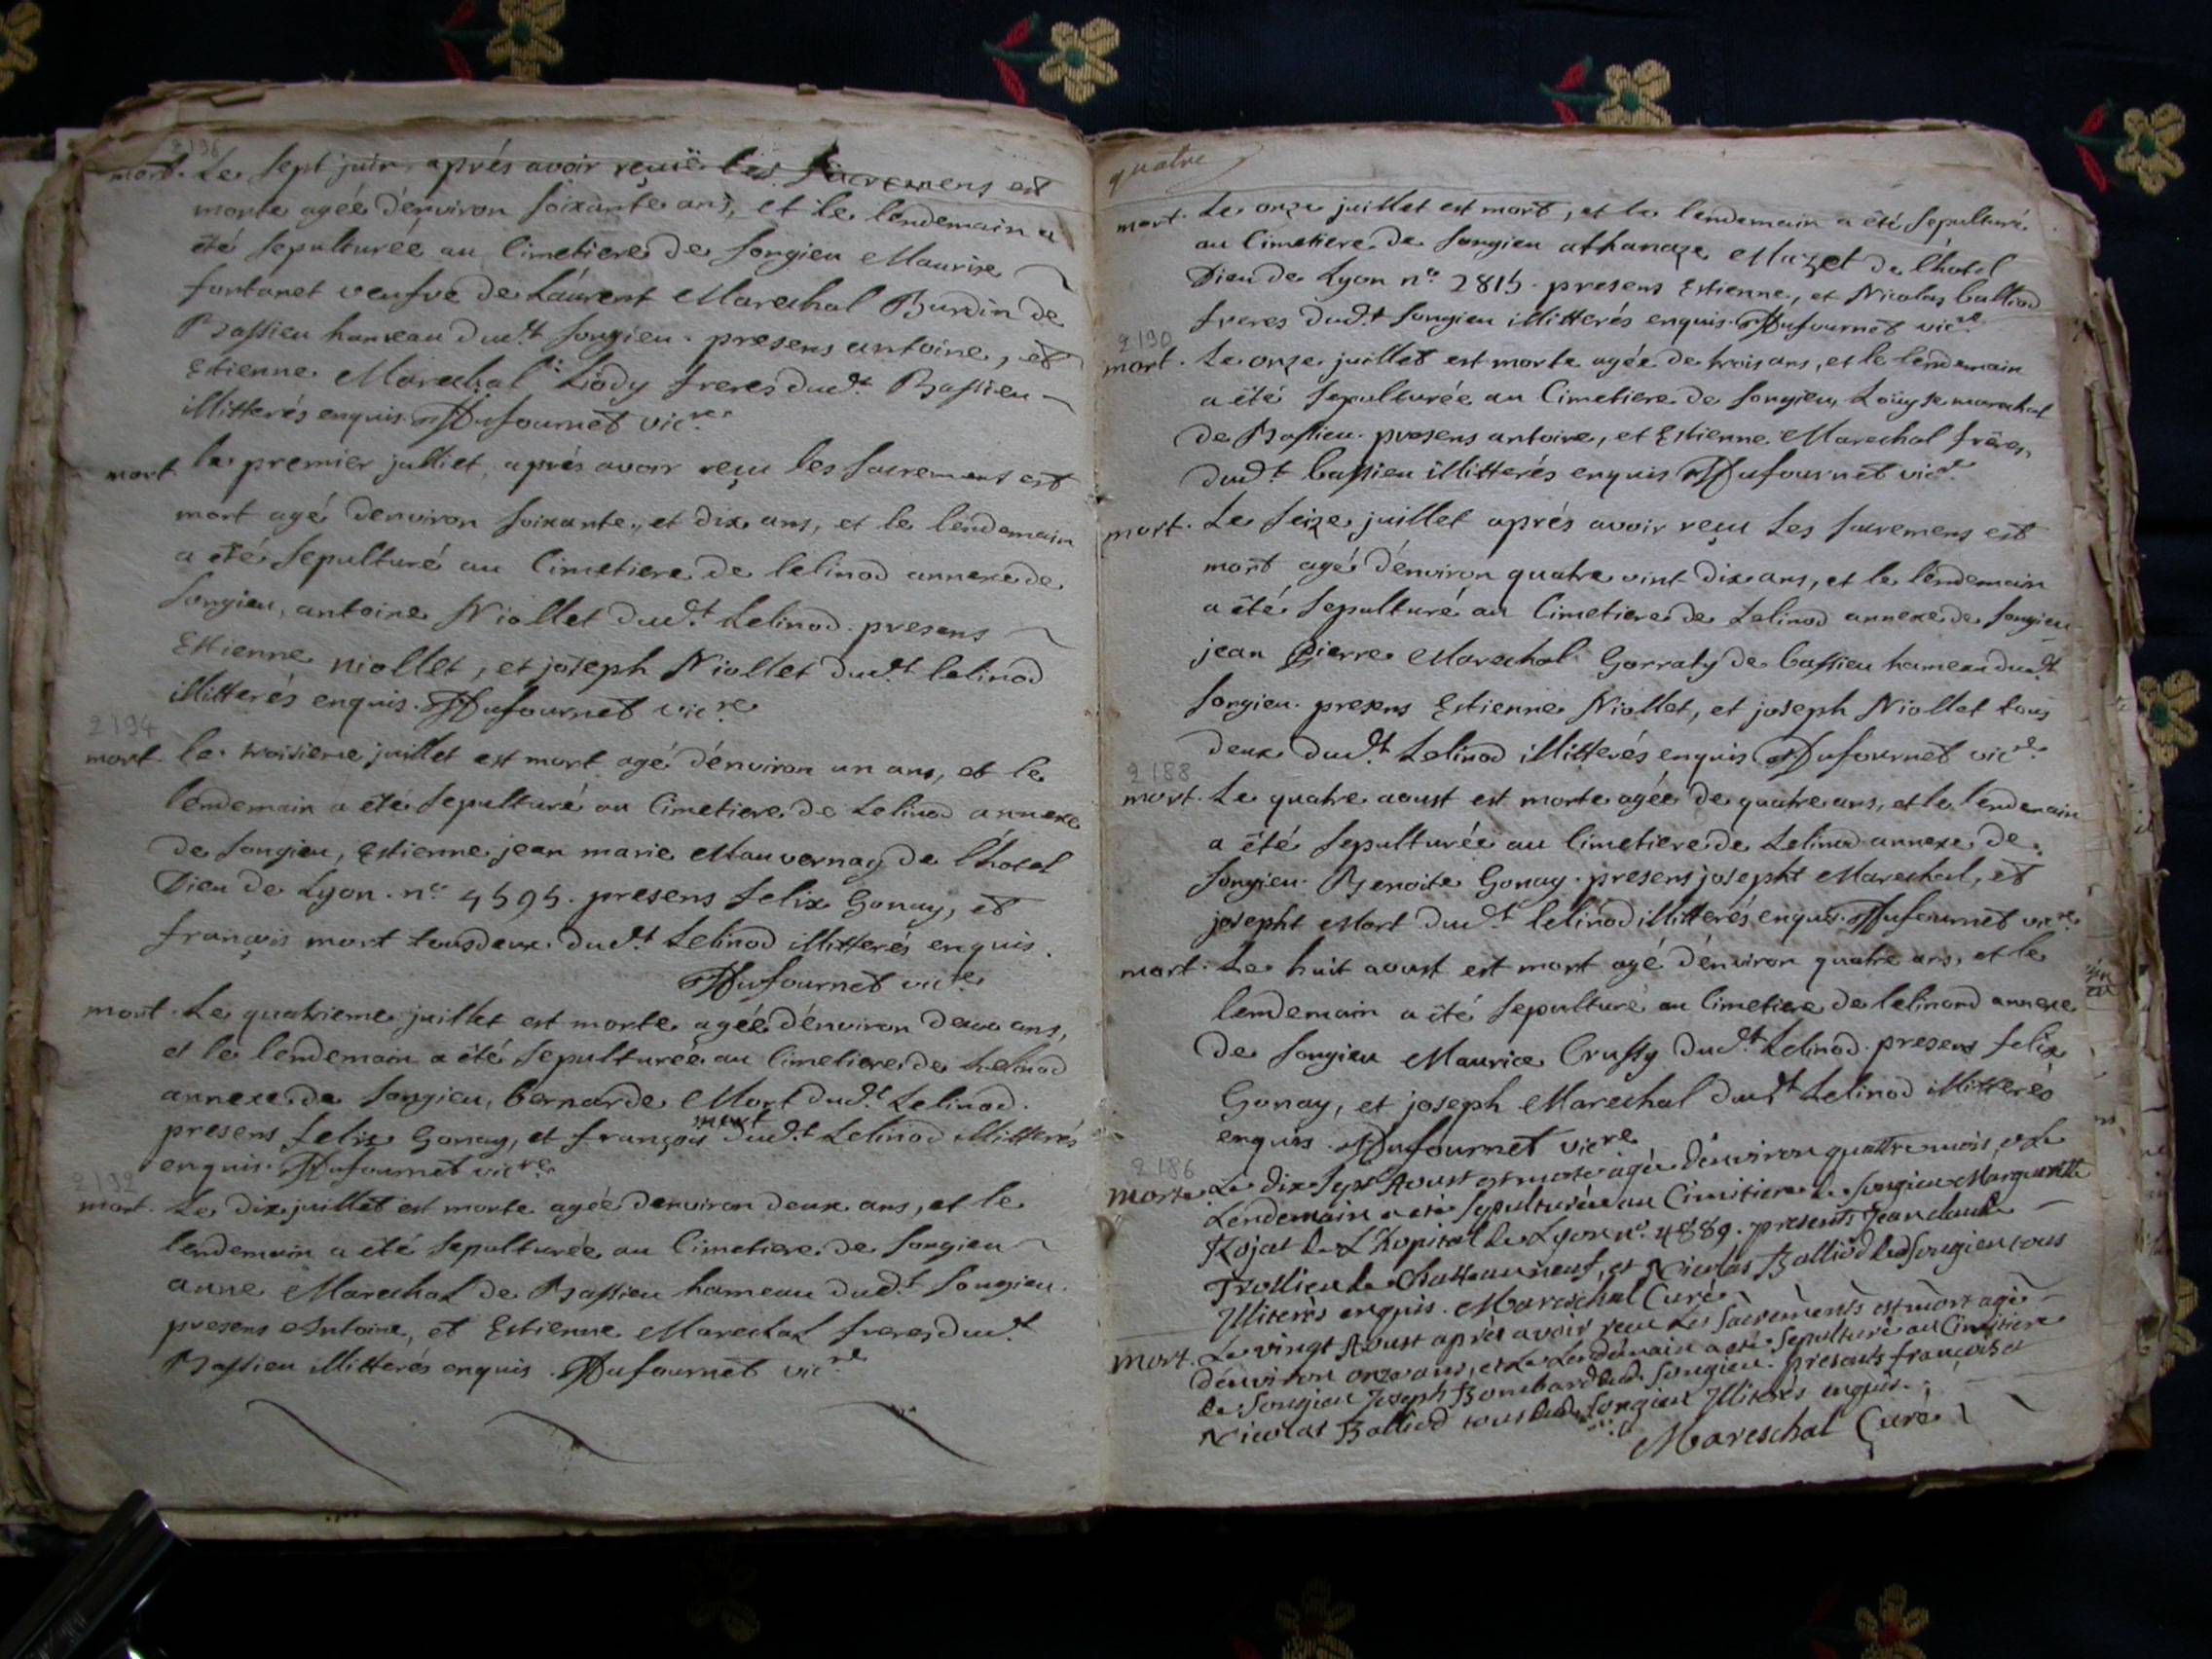 2196
mort. Le sept juin, aprés avoir reçuë les sacremens est
morte agéé d'énviron soixante ans, et le lendemain a
été sepulturéé au Cimetiere de songieu Maurise
fontanet veufve de Láurent Marechal Burdin de
Bassieu hameau dud.t songieu. presens antoine, et
Estienne Marechal Liody freres dud.t Bassieu
illitterés enquis. Dufournet vic.re
mort. le premier julliet, aprés avoir reçu les sacremens est
mort agé denviron soixante, et dix ans, et le léndemain
a été sepulturé au Cimetiere de lelinod annexe de
songieu, antoine Niollet dud.t Lelinod. presens
Estienne niollet, et joseph Niollet dud.t lelinod
illitterés enquis. Dufournet vic.re
2194
mort. le troisieme juillet est mort agé d'énviron un ans, et le
lendemain a été sepulturé au Cimetiere de Lelinod annexe
de songieu, Estienne jean marie Mauvernay de l'hotel
Dieu de Lyon. n.o 4595. presens felix Gonay, et
françois mort tousdeux dud.t Lelinod illitterés enquis.
Dufournet vic.re
mort. Le quatrieme juillet est morte agéé d'énviron deux ans,
et le lendemain a été sepulturéé au Cimetiere de Lelinod
annexe de songieu, bernarde Mort dud.t Lelinod.
presens felix Gonay, et françois mort dud.t Lelinod illitterés
enquis. Dufournet vic.re
2192
mort. Le dix juillet est morte agéé denviron deux ans, et le
lendemain a été sepulturéé au Cimetiere de songieu
anne Marechal de Bassieu hameau dud.t songieu.
presens Antoine, et Estienne Marechal freres dud.t
Bassieu illitterés enquis. Dufournet vic.re
quatre
mort. Le onze juillet est mort, et le lendemain a été sepulturé
au Cimetiere de songieu athanaze Mazet de l'hotel
Dieu de Lyon n.o 2815. presens Estienne, et Nicolas balliod
freres dud.t songieu illitterés enquis. Dufournet vic.re
2190
mort. Le onze juillet est morte agéé de trois ans, et le lendemain
a été sepulturéé au Cimetiere de songieu, Loüyse marechal
de Bassieu. presens antoine, et Estienne Marechal fréres
dud.t bassieu illitterés enquis Dufournet vic.re
mort. Le seize juillet aprés avoir reçu les sacremens est
mort agé d'énviron quatre vint dix ans, et le lendemain
a été sepulturé au Cimetiere de Lelinod annexe de songieu
jean Pierre Marechal Gorraty de bassieu hameau dud.t
songieu. presens Estienne Niollet, et joseph Niollet tous
deux dud.t Lelinod illitterés enquis Dufournet vic.re
2188
mort. Le quatre aoust est morte agéé de quatre ans, et le lendemain
a été sepulturéé au Cimetiere de Lelinod annexe de
songieu. Benoite Gonay. presens josepht Marechal, et
josepht Mort dud.t lelinod illitterés enquis. Dufournet vic.re
mort. Le huit aoust est mort agé d'énviron quatre ans, et le
lendemain a été sepulturé au Cimetiere de lelinond annexe
de songieu Maurice Crussy dud.t Lelinod. presens felix
Gonay, et joseph Marechal dud.t Lelinod illitterés
enquis. Dufournet vic.re
2186
morte Le dix sept Aoust est morte agée d'environ quattre mois, et Le
Lendemain a eté sepulturée au Cimitiere de songieu Margueritte
Rojat de L'Hopital de Lyon n.o 4889. presents Jean claude
Trollieu de Chatteauneuf, et Nicolas Balliod dud songieu tous
Illiterés enquis. Mareschal Curé
mort. Le vingt Aoust aprés avoir reçu Les sacrements est mort agé
d'environ onze ans, et Le Lendemain a eté sepulturé au Cimitiere
de songieu Joseph Bombard dud. songieu. presents françois et
Nicolas Balliod tous dud. songieu Illiterés enquis.
Mareschal Curé